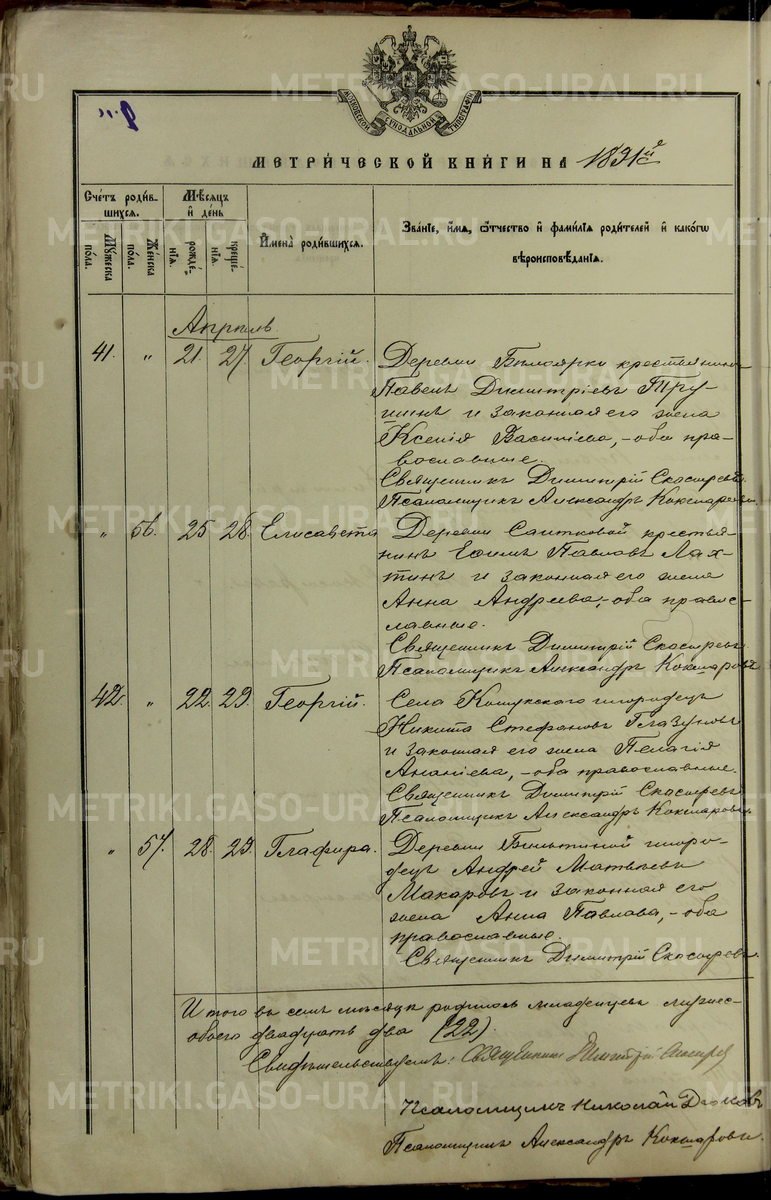 МОСКОВСКОЙ СѴНОДАЛЬНОЙ ТИПОГРАФІИ
МЕТРИ́ЧЕСКОЙ КНИ́ГИ НА 1891й
Сче́тъ роди́в-
шихся.
Мѣ́сяцъ
и҆ де́нь
Мꙋ́жеска
по́ла.
Же́нска
по́ла.
рожде́-
нїѧ.
креще́-
нїѧ.
И҆мена̀ роди́вшихся.
Зва́нїе, и҆́мѧ, ѻ҆́тчество и҆ фами́лїѧ роди́телей и҆ како́гѡ
вѣроисповѣ́данїѧ.
Апрѣль
41. " 21. 27. Георгій. Деревни крестьянинъ
Павелъ Димитріевъ Тру-
шинъ и законная его жена
Ксенія Васильева, - оба пра-
вославные.
Священникъ Димитрій Скосыревъ.
Псаломщикъ Александръ Кокшаровъ.
" 56. 25. 28. Елисавета Деревни Саитковой крестья-
нинъ Ефимъ Павловъ Лах-
тинъ и законная его жена
Анна Андреева, - оба правос-
лавные.
Священникъ Димитрій Скосыревъ.
Псаломщикъ Александръ Кокшаровъ
42. " 22. 29. Георгій. Села Кошукского инородецъ
Никита Стефановъ Глазуновъ
и законная его жена Пелагія
Ананіева, - оба православные.
Священникъ Димитрій Скосыревъ
Псаломщикъ Александръ Кокшаровъ.
" 57. 28. 29. Глафира. Деревни иноро-
децъ Андрей Матвѣевъ
Макаровъ и законная его
жена Анна Павлова, - оба
православные.
Священникъ Димитрій Скосыревъ.
Итого въ семъ мѣсяцѣ родилось младенцевъ мужес-
двадцать два (22).
Свидѣтельствуемъ: Священникъ Димитрій Скосырев
Псаломщикъ Николай
Псаломщикъ Александръ Кокшаровъ.
METRIKI.GASO-URAL.RU